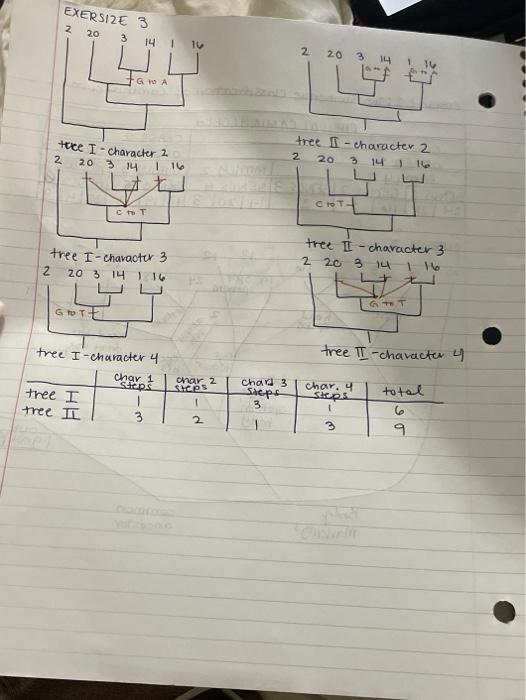 EXERSIZE 3
2 20 3 14 1 16
G to A
tree I - character 2
2 20 3 14 1 16
G to A G to A
tree II - character 2
2 20 3 14 1 16
C to T
tree I - character 3
2 20 3 14 1 16
C to T
tree II - character 3
2 20 3 14 1 16
G to T
tree I - character 4
2 20 3 14 1 16
G to T
tree II - character 4
char 1 steps char. 2 steps char 3 steps char. 4 steps total
tree I 1 1 3 1 6
tree II 3 2 1 3 9